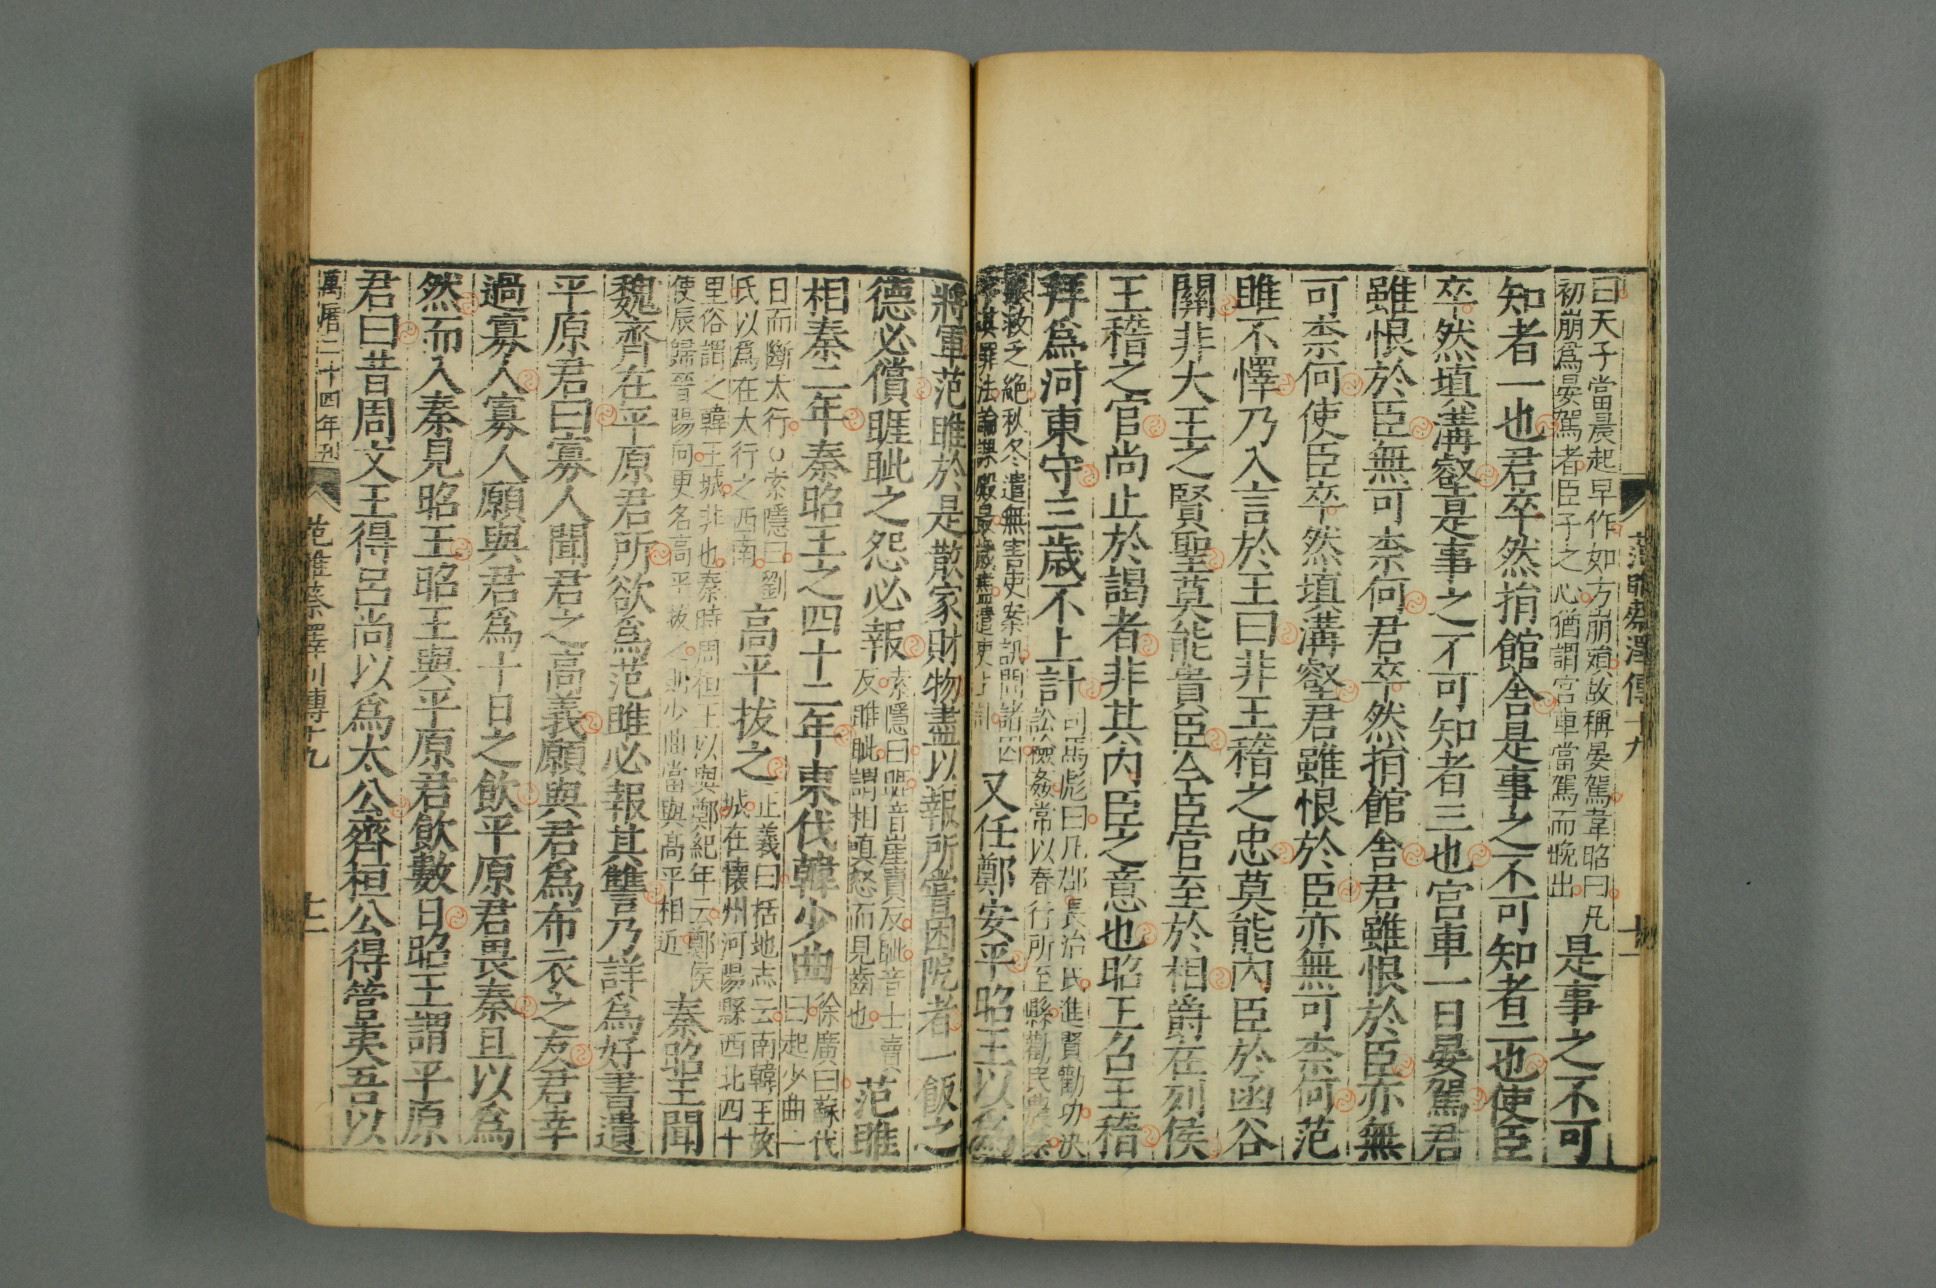 曰天子當晨起早作如方崩殞故稱晏駕韋昭曰凡
初崩爲晏駕者臣子之心猶謂宮車當駕而晚出
是事之不可
知者一也君卒然捐館舍是事之不可知者二也使臣
卒然填溝壑是事之不可知者三也宮車一日晏駕君
雖恨於臣無可柰何君卒然捐館舍君雖恨於臣亦無
可柰何使臣卒然填溝壑君雖恨於臣亦無可柰何范
雎不懌乃入言於王曰非王稽之忠莫能內臣於函谷
關非大王之賢聖莫能貴臣今臣官至於相爵在列侯
王稽之官尚止於謁者非其內臣之意也昭王召王稽
拜爲河東守三歲不上計
司馬彪曰凡郡長治民進賢勸功決
訟檢姦常以春行所至縣勸民農桑
振救乏絕秋冬遣無害吏案訊問諸囚
平其罪法論課殿最歲盡遣吏上計
又任鄭安平昭王以爲
將軍范雎於是散家財物盡以報所嘗困阨者一飯之
德必償睚眦之怨必報
索隱曰睚音崖賣反眦音士賣
反睚眦謂相嗔怒而見齒也
范雎
相秦二年秦昭王之四十二年東伐韓少曲
徐廣曰蘇代
曰起少曲一
日而斷太行○索隱曰劉
氏以爲在太行之西南
高平拔之
正義曰括地志云南韓王故
城在懷州河陽縣西北四十
里俗謂之韓王城非也秦時周桓王以與鄭紀年云鄭侯
使辰歸晉陽向更名高平拔之則少曲當與高平相近
秦昭王聞
魏齊在平原君所欲爲范雎必報其讐乃詳爲好書遺
平原君曰寡人聞君之高義願與君爲布衣之友君幸
過寡人寡人願與君爲十日之飲平原君畏秦且以爲
然而入秦見昭王昭王與平原君飲數日昭王謂平原
君曰昔周文王得呂尚以爲太公齊桓公得管夷吾以
范雎蔡澤傳十九
十一
萬曆二十四年刊
范雎蔡澤列傳十九
十二